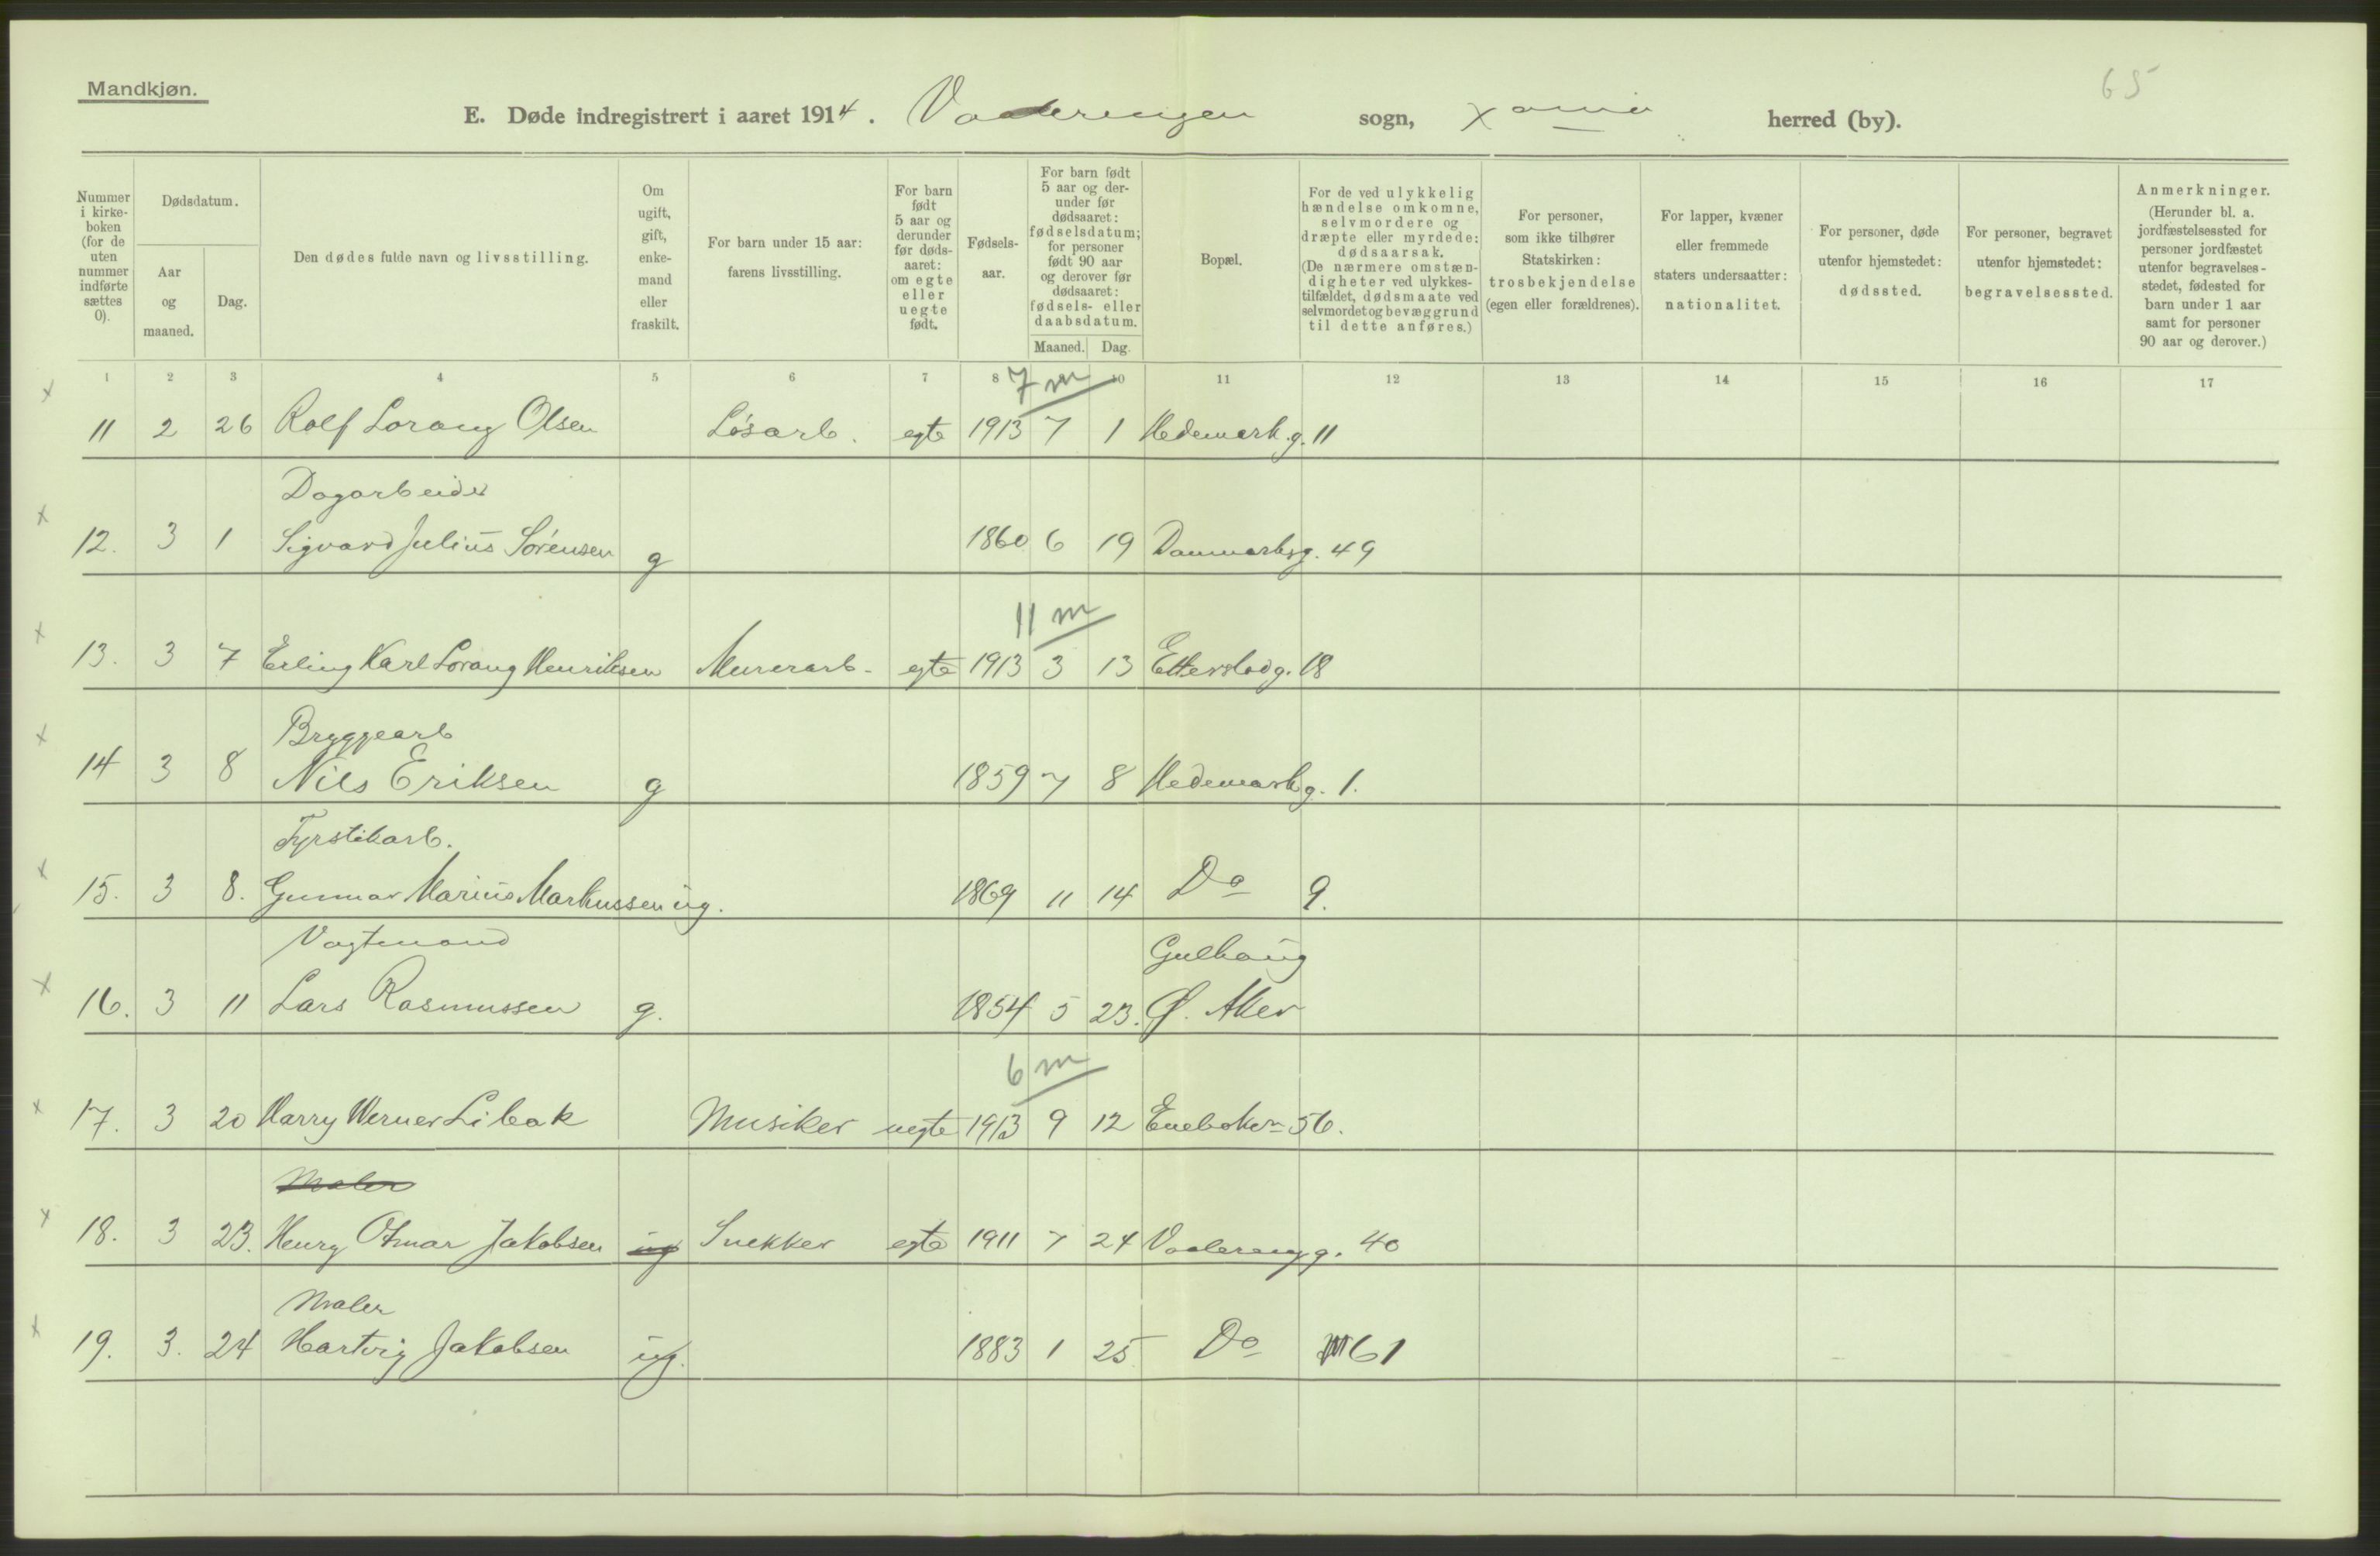 65
Mandkjøn.
E. Døde indregistrert i aaret 1914. Vaalerengen sogn, Xania herred (by).
Nummer i kirke-boken (for de uten nummer indførte sættes 0).
Dødsdatum.
Aar og maaned.
Dag.
Den dødes fulde navn og livsstilling.
Om ugift, gift, enke-mand eller fraskilt.
For barn under 15 aar: farens livsstilling.
For barn født 5 aar og derunder før døds-aaret: om egte eller uegte født.
Fødsels-aar.
For barn født 5 aar og der-under før dødsaaret: fødselsdatum; for personer født 90 aar og derover før dødsaaret: fødsels- eller daabsdatum.
Maaned. Dag.
Bopæl.
For de ved ulykkelig hændelse omkomne, selvmordere og dræpte eller myrdede: dødsaarsak. (De nærmere omstæn-digheter ved ulykkes-tilfældet, dødsmaate ved selvmordet og bevæggrund til dette anføres.)
For personer, som ikke tilhører Statskirken: trosbekjendelse (egen eller forældrenes).
For lapper, kvæner eller fremmede staters undersaatter: nationalitet.
For personer, døde utenfor hjemstedet: dødssted.
For personer, begravet utenfor hjemstedet: begravelsessted.
Anmerkninger. (Herunder bl. a. jordfæstelsessted for personer jordfæstet utenfor begravelses-stedet, fødested for barn under 1 aar samt for personer 90 aar og derover.)
1 2 3 4 5 6 7 8 10 11 12 13 14 15 16 17
7 m
x 11 2 26 Rolf Lorang Olsen Løsarb. egte 1913 7 1 Hedemark.g. 11
Dagarbeider
x 12. 3 1 Sigvard Julius Sørensen g 1860 6 19 Danmarksg. 49
11 m
x 13. 3 7 Erling Karl Lorang Henriksen Murerarb. egte 1913 3 13 Etterstadg. 18
Bryggearb
x 14 3 8 Nils Eriksen g 1859 7 8 Hedemarkg. 1.
Fyrstikarb.
x 15. 3 8. Gunnar Marius Markussen ug. 1869 11 14 Do 9.
Vagtmand Gulhaug
x 16. 3 11 Lars Rasmussen g. 1854 5 23. Ø. Aker
6 m
x 17. 3 20 Harry Werner Libak Musiker uegte 1913 9 12 Enebakv 56.
Maler
x 18. 3 23. Henry Otmar Jakobsen ug Snekker egte 1911 7 24 Vaalerengg. 40
Maler
x 19. 3. 24 Hartvig Jakobsen ug. 1883 1 25 Do 61